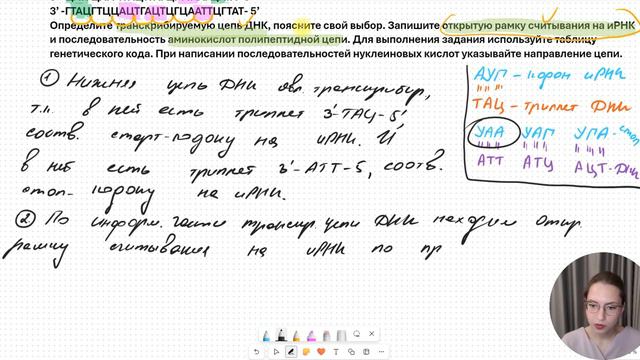 3' -ГТАЦГТЦЦАЦТГАЦТЦГЦААТТЦГТАТ- 5'
Определите транскрибируемую цепь ДНК, поясните свой выбор. Запишите открытую рамку считывания на иРНК
и последовательность аминокислот полипептидной цепи. Для выполнения задания используйте таблицу
генетического кода. При написании последовательностей нуклеиновых кислот указывайте направление цепи.
① Нижняя цепь ДНК явл. транскрибир,
т.к. в ней есть триплет 3'-ТАЦ-5',
соотв. старт-кодону на иРНК. И
в ней есть триплет 3'-АТТ-5, соотв.
стоп-кодону на иРНК.
② По информ. части транскр. цепи ДНК находим откр.
рамку считывания на иРНК по пр
АУГ - кодон иРНК
ТАЦ - триплет ДНК
УАА УАГ УГА - стоп
АТТ АТЦ АЦТ - ДНК